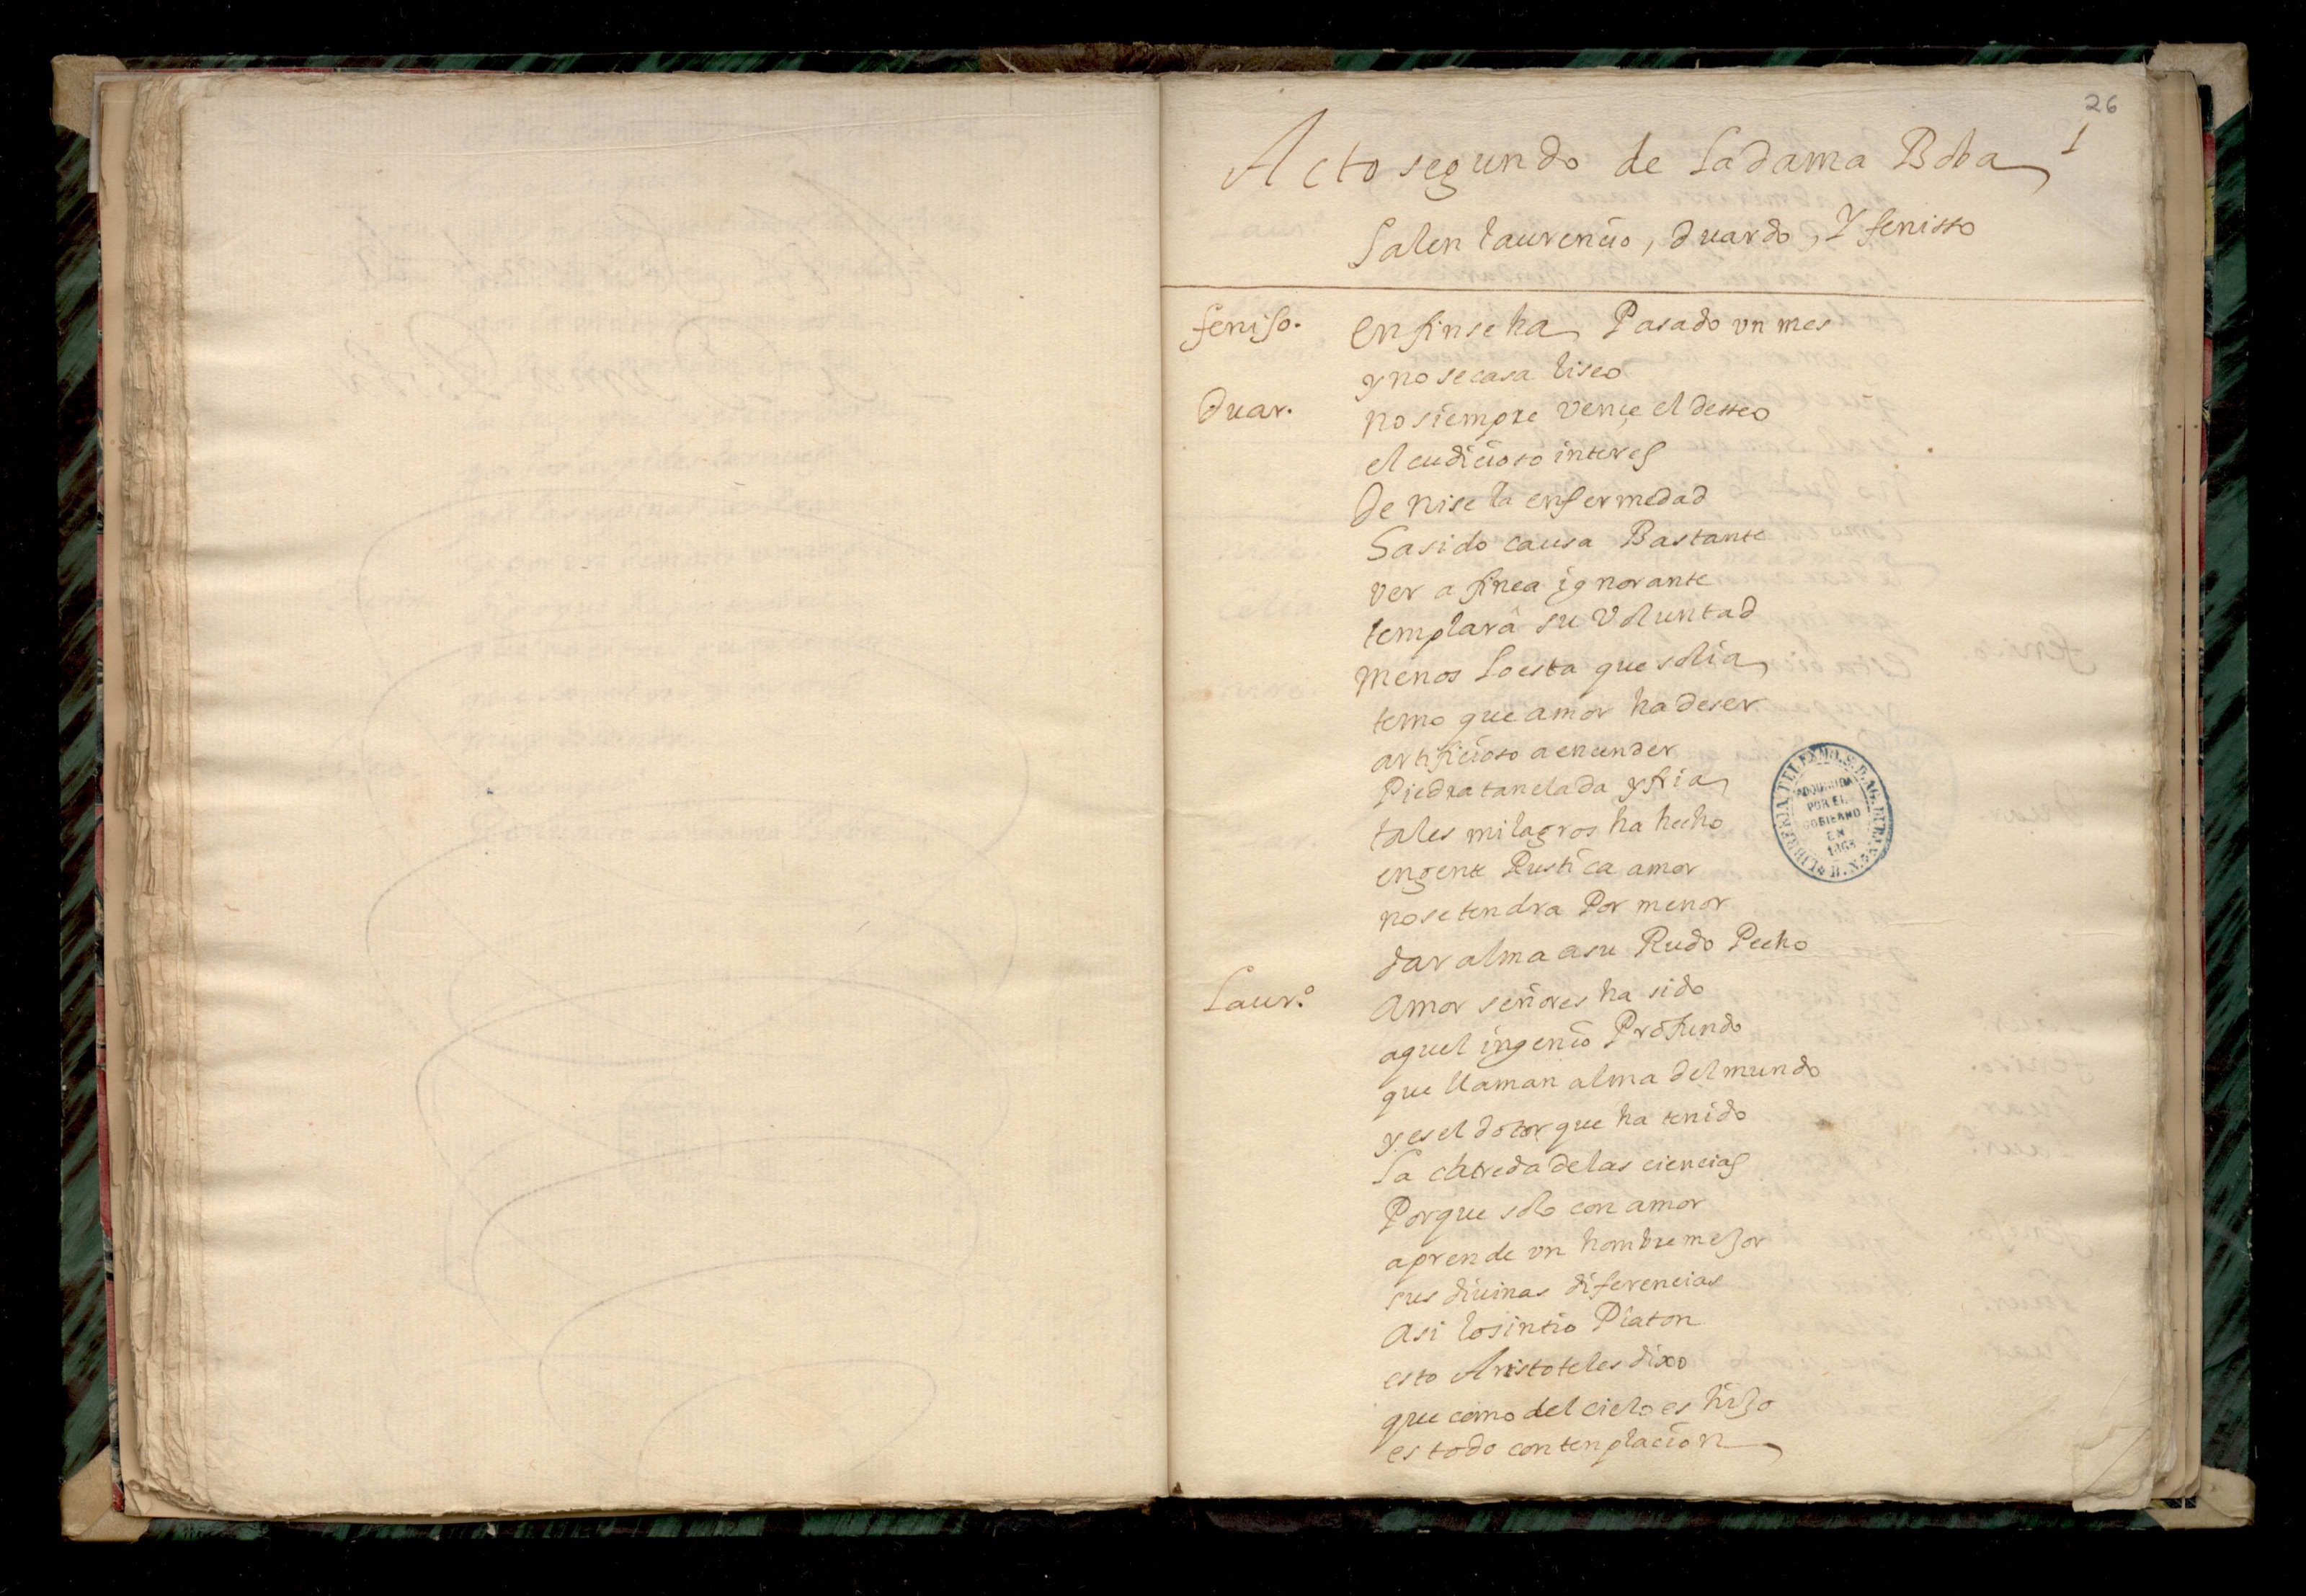 26
1
Acto segundo de la dama Boba
Salen laurencio, duardo, Y fenisso
feniso. en fin se ha Pasado vn mes
y no se casa liseo
Duar. no siempre vençe el desseo
el cudicioso interes
de nise la enfermedad
ha sido causa Bastante
ver a finea ignorante
templarâ su voluntad
menos lo esta que solia
temo que amor ha de ser
artificioso a encender
Piedra tan elada y fria
tales milagros ha hecho
en gente Rustica amor
no se tendra Por menor
dar alma a su Rudo Pecho
Laur.º Amor señores ha sido
aquel ingenio Profundo
que llaman alma del mundo
y es el dotor que ha tenido
la catreda de las ciencias
Porque solo con amor
aprende vn hombre mejor
sus diuinas diferencias
asi lo sintio Platon
esto Aristoteles dixo
que como del cielo es hijo
es todo contenplacion
LIBRERIA DEL EXMO. S. D. AG. DURAN. B. N.
ADQUIRIDA
POR EL
GOBIERNO
EN
1863